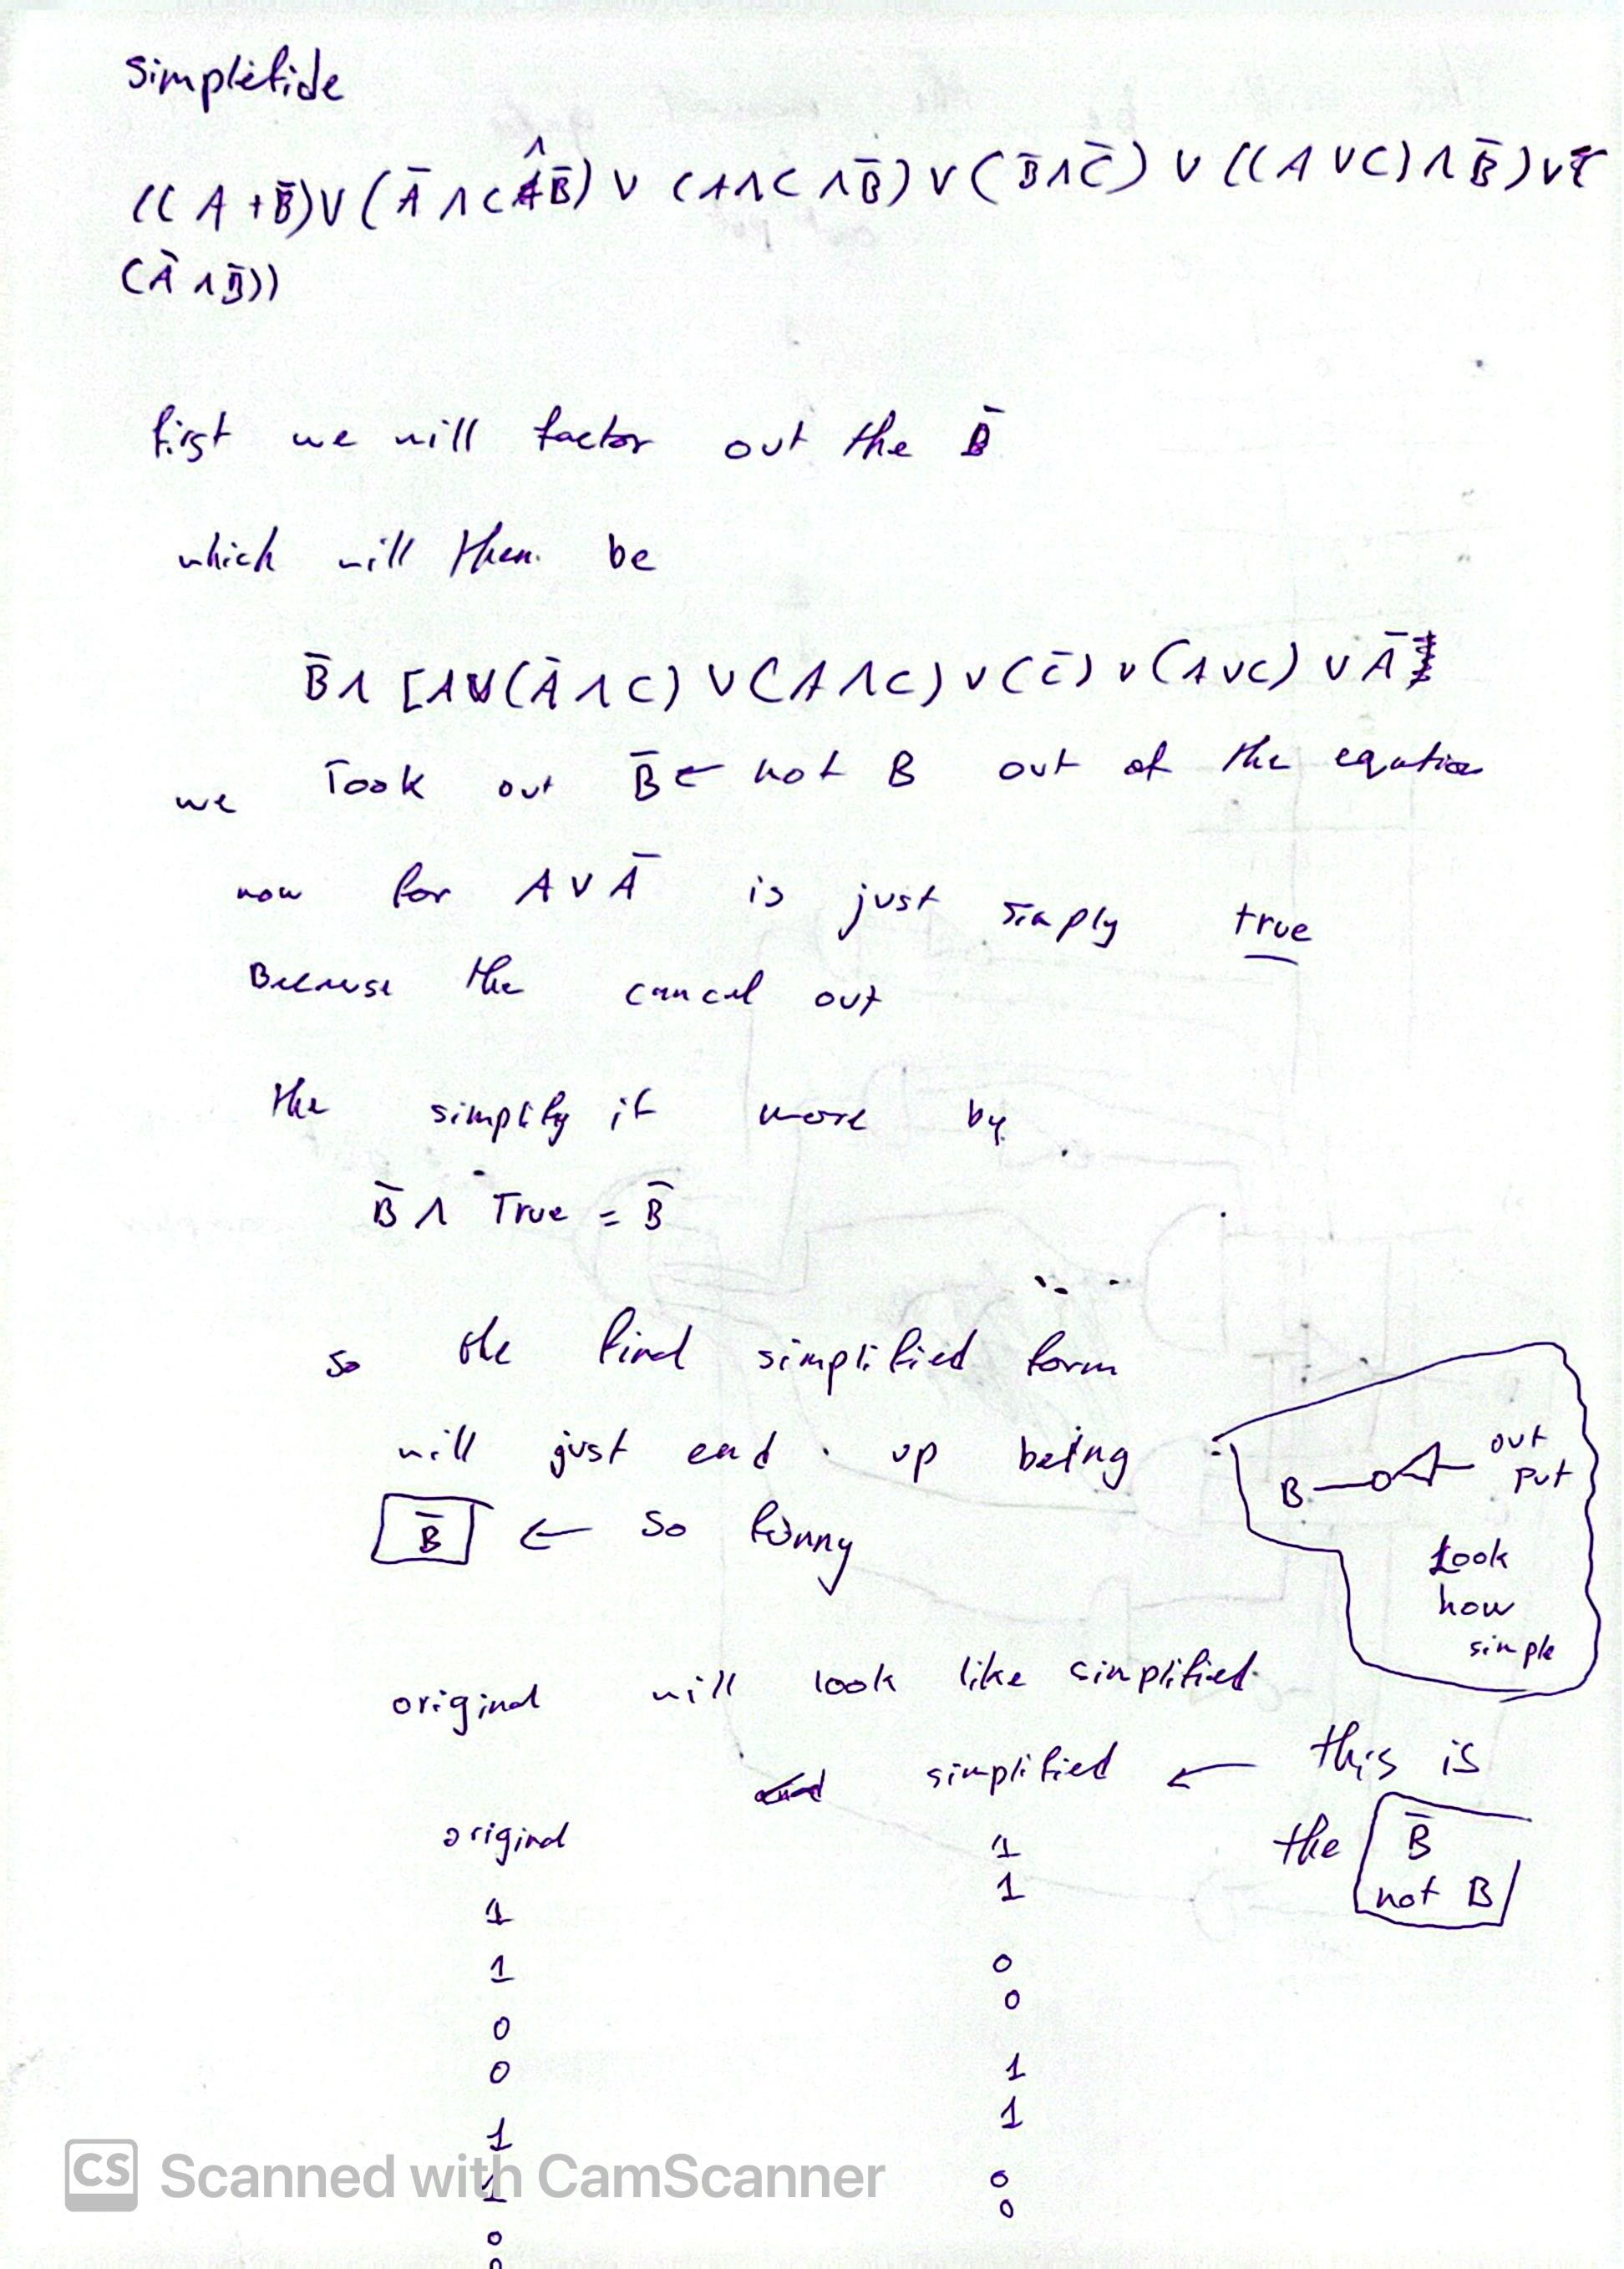 Simplefide
(( A + B̄) V (Ā ∧ C ∧ B̄) V (A ∧ C ∧ B̄) V (B̄ ∧ C̄) V ((A V C) ∧ B̄) V
(Ā ∧ B̄))
first we will factor out the B̄
which will then be
B̄ ∧ [A V (Ā ∧ C) V (A ∧ C) V (C̄) V (A V C) V Ā]
we Took out B̄ ← not B out of the eqution
now for A V Ā is just simply true
Because the cancel out
the simplify it more by
B̄ ∧ True = B̄
so the final simplified form
will just end up being
B̄ ← so funny
B out put
Look
how
simple
original will look like simplified
and simplified ← this is
the B̄
not B
original
1
1
0
0
1
1
0
0
1
1
0
0
1
1
0
0
CS Scanned with CamScanner